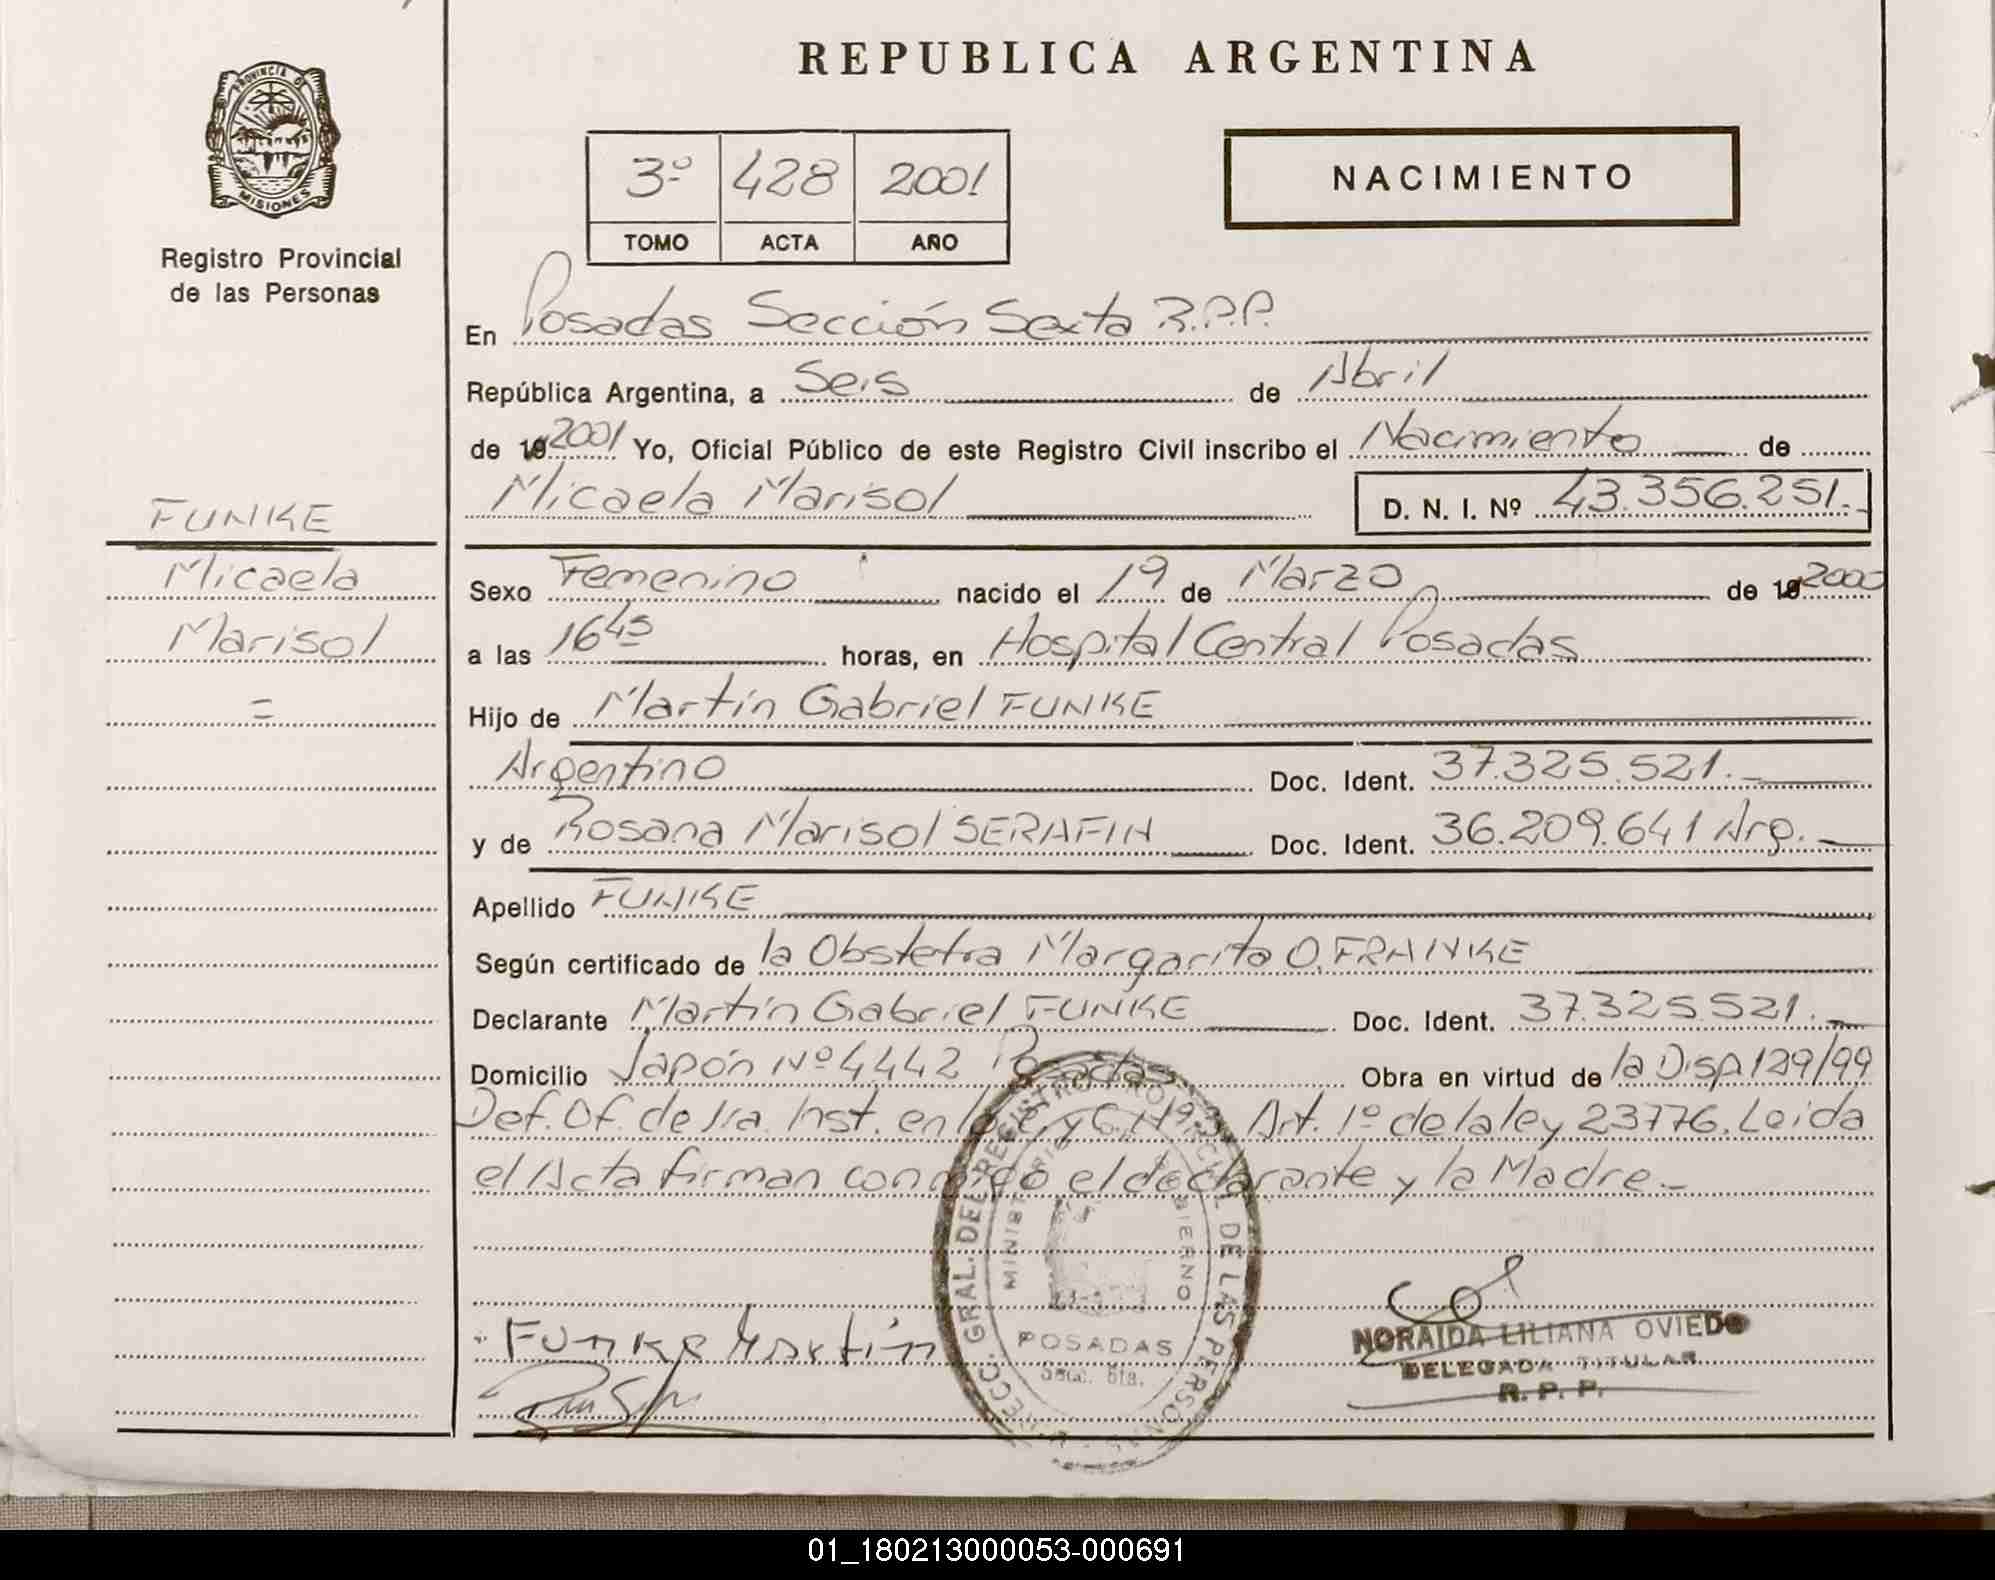 REPUBLICA ARGENTINA
PROVINCIA DE
MISIONES
Registro Provincial
de las Personas
3º 428 2001
TOMO ACTA AÑO
NACIMIENTO
En Posadas Sección Sexta R.P.P.
República Argentina, a Seis de Abril
de 19 2001 Yo, Oficial Público de este Registro Civil inscribo el Nacimiento de
Micaela Marisol D. N. I. Nº 43.356.251.-
FUNKE
Micaela
Marisol
=
Sexo Femenino nacido el 19 de Marzo de 19 2000
a las 16 45 horas, en Hospital Central Posadas
Hijo de Martín Gabriel FUNKE
Argentino Doc. Ident. 37.325.521.-
y de Rosana Marisol SERAFIN Doc. Ident. 36.209.641 Arg.-
Apellido FUNKE
Según certificado de la Obstetra Margarita O. FRANKE
Declarante Martín Gabriel FUNKE Doc. Ident. 37.325.521.-
Domicilio Japón Nº 4442 Posadas Obra en virtud de la Disp. 129/99
Def. Of. de 1ra. Inst. en lo y Art. 1º de la ley 23776. Leida
el Acta firman conmigo el declarante y la Madre.-
DIRECC. GRAL. DEL REGISTRO PROVINCIAL DE LAS PERSONAS
MINISTERIO GOBIERNO
POSADAS
Secc. 6ta.
Funke Martín
NORAIDA LILIANA OVIEDO
DELEGADA TITULAR
R. P. P.
01_180213000053-000691